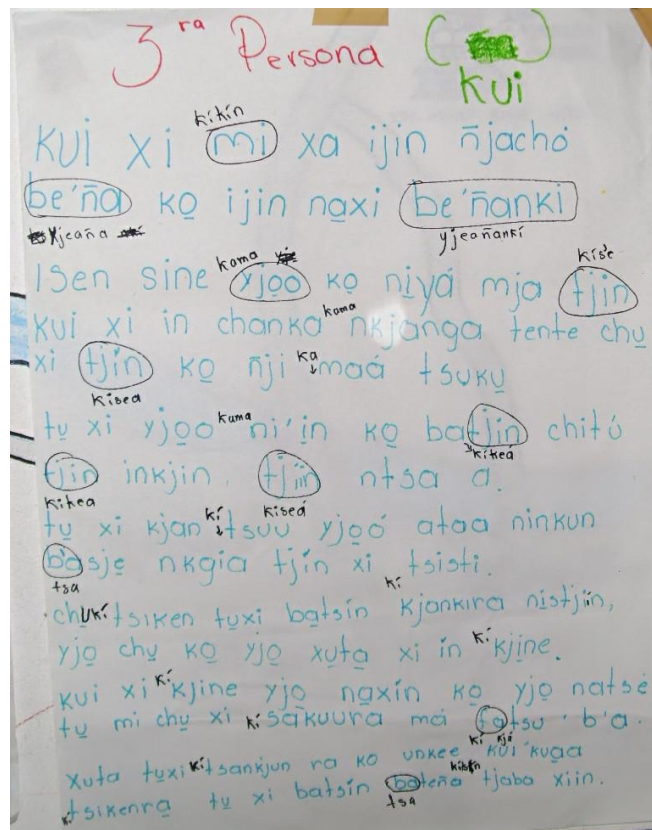 3ra Persona
kui
kikin
Kui xi mi xa ijin ñjachó
be'ña ko̱ ijin na̱xi be'ñanki
xjeaña yjeañankí
kama kís'e
Isen sine yjoo ko̱ ni̱yá mja tjin
kui xi in chanka kama nkjanga tente chu̱
xi tjín ko̱ ñji ka maá tsuku̱
kisea
tu̱ xi yjo̱o kama ni'in ko̱ batjin chitó
kikeá
tjin inkjin. tjiin ntsa a.
kikea kiseá
tu̱ xi kjan kí tsuu yjo̱ó ataa ninkun
ba̱sje̱ nkgia tjín xi kí tsisti.
tsa
chu̱ kí tsiken tu̱xi ba̱tsín kjankira ni̱stjín,
yjo̱ chu̱ ko̱ yjo̱ xu̱ta̱ xi in kí kji̱ne̱.
kui xi kí kji̱ne yjo̱ na̱xín ko̱ yjo̱ natsé
tu̱ mi chu̱ xi kí sa̱kuura má fa̱tsu b'a.
kí kjá
xuta tu̱xi kí tsankjun ra ko unkee kui kuga
kí tsikenra̱ tu̱ xi batsín bateña kisín tjaba xiin.
tsa